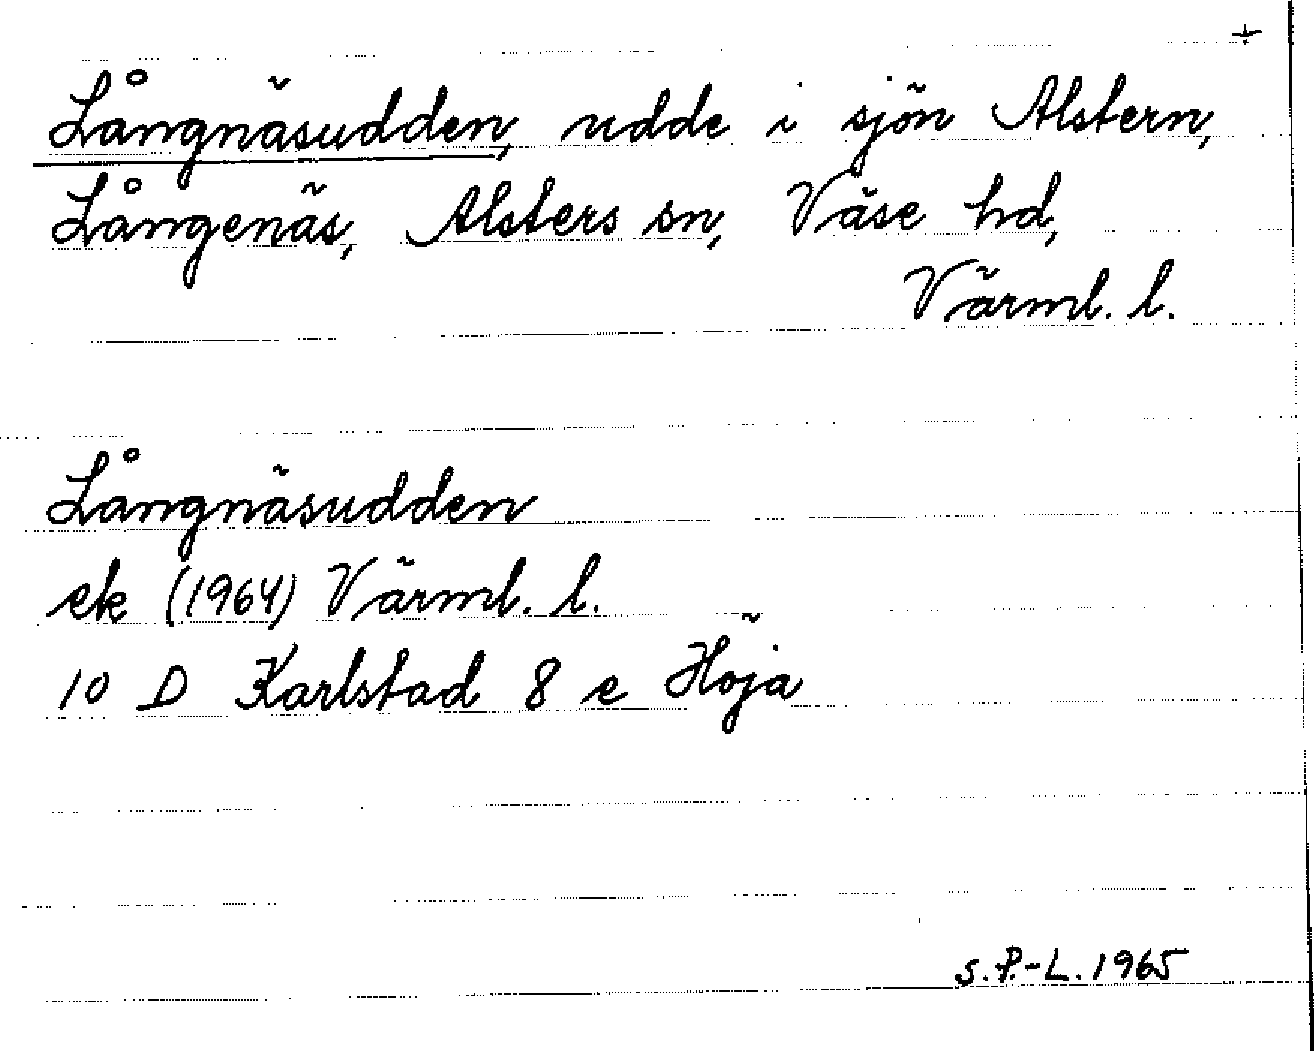 ÷
Långnäsudden, udde i sjön Alstern,
Långenäs, Alsters sn, Väse hd,
Värml. l.
Långnäsudden
ek (1964) Värml. l.
10 D Karlstad 8 e Höja
S.P.-L. 1965